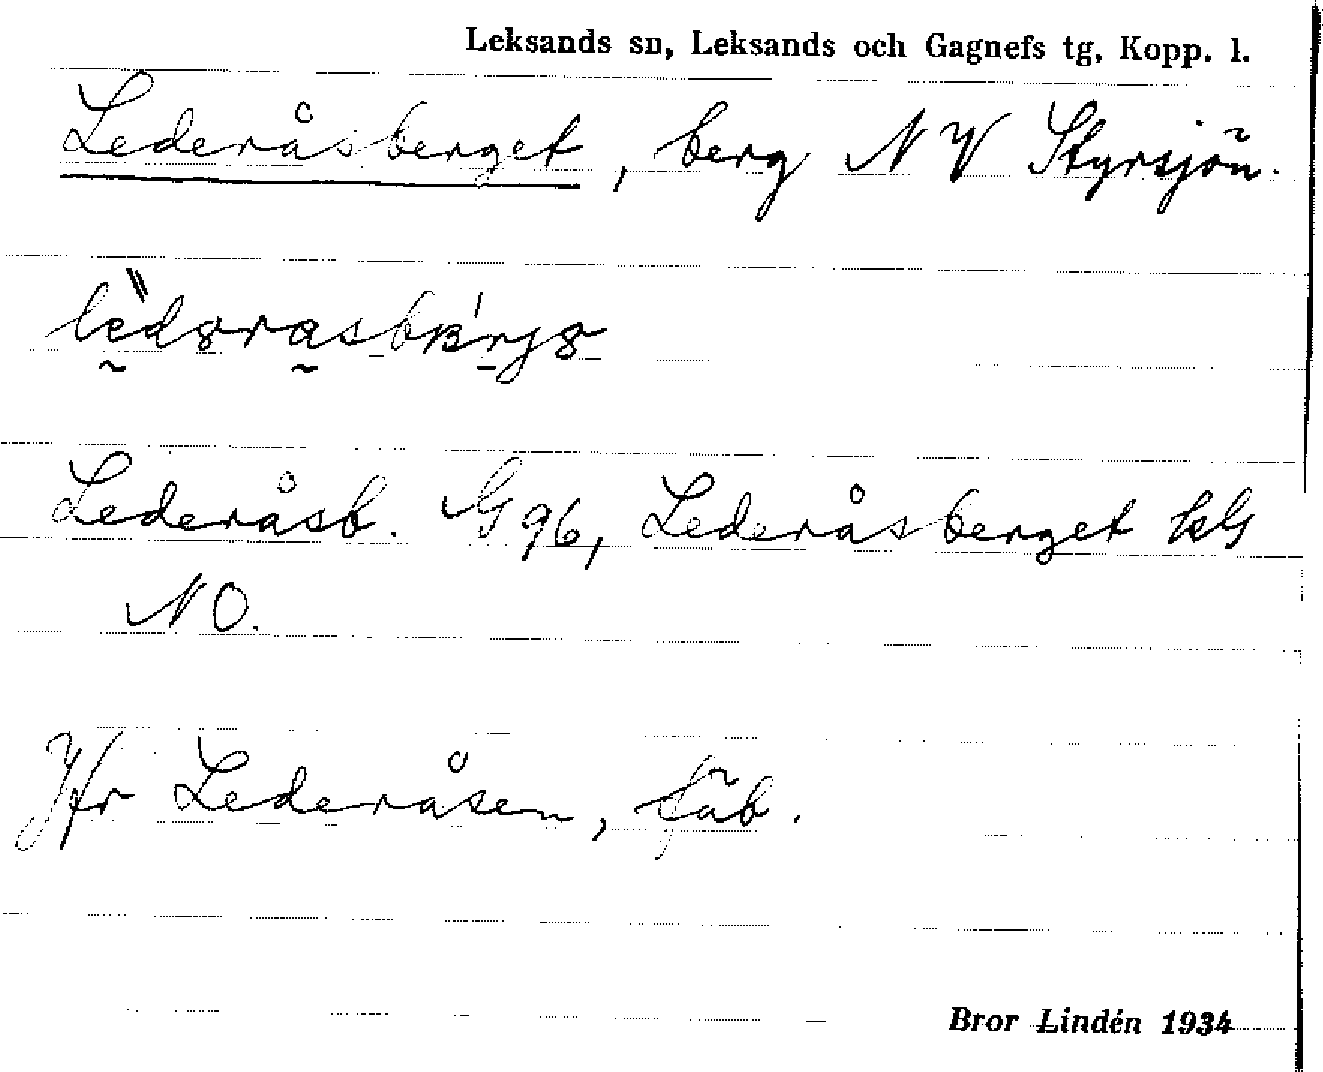 Leksands sn, Leksands och Gagnefs tg, Kopp. l.
Lederåsberget, berg NV Styrsjön.
Lederåsb. G 96, Lederåsberget hG
NO.
Jfr Lederåsen, fäb.
Bror Lindén 1934